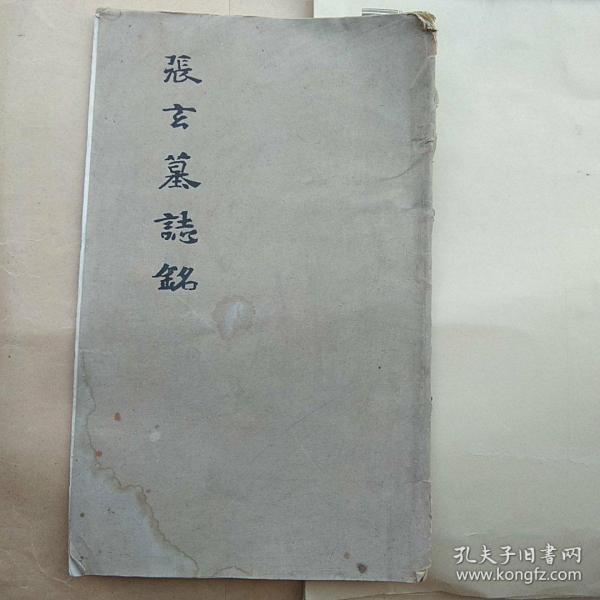 張玄墓誌銘
孔夫子旧書网
www.kongfz.com